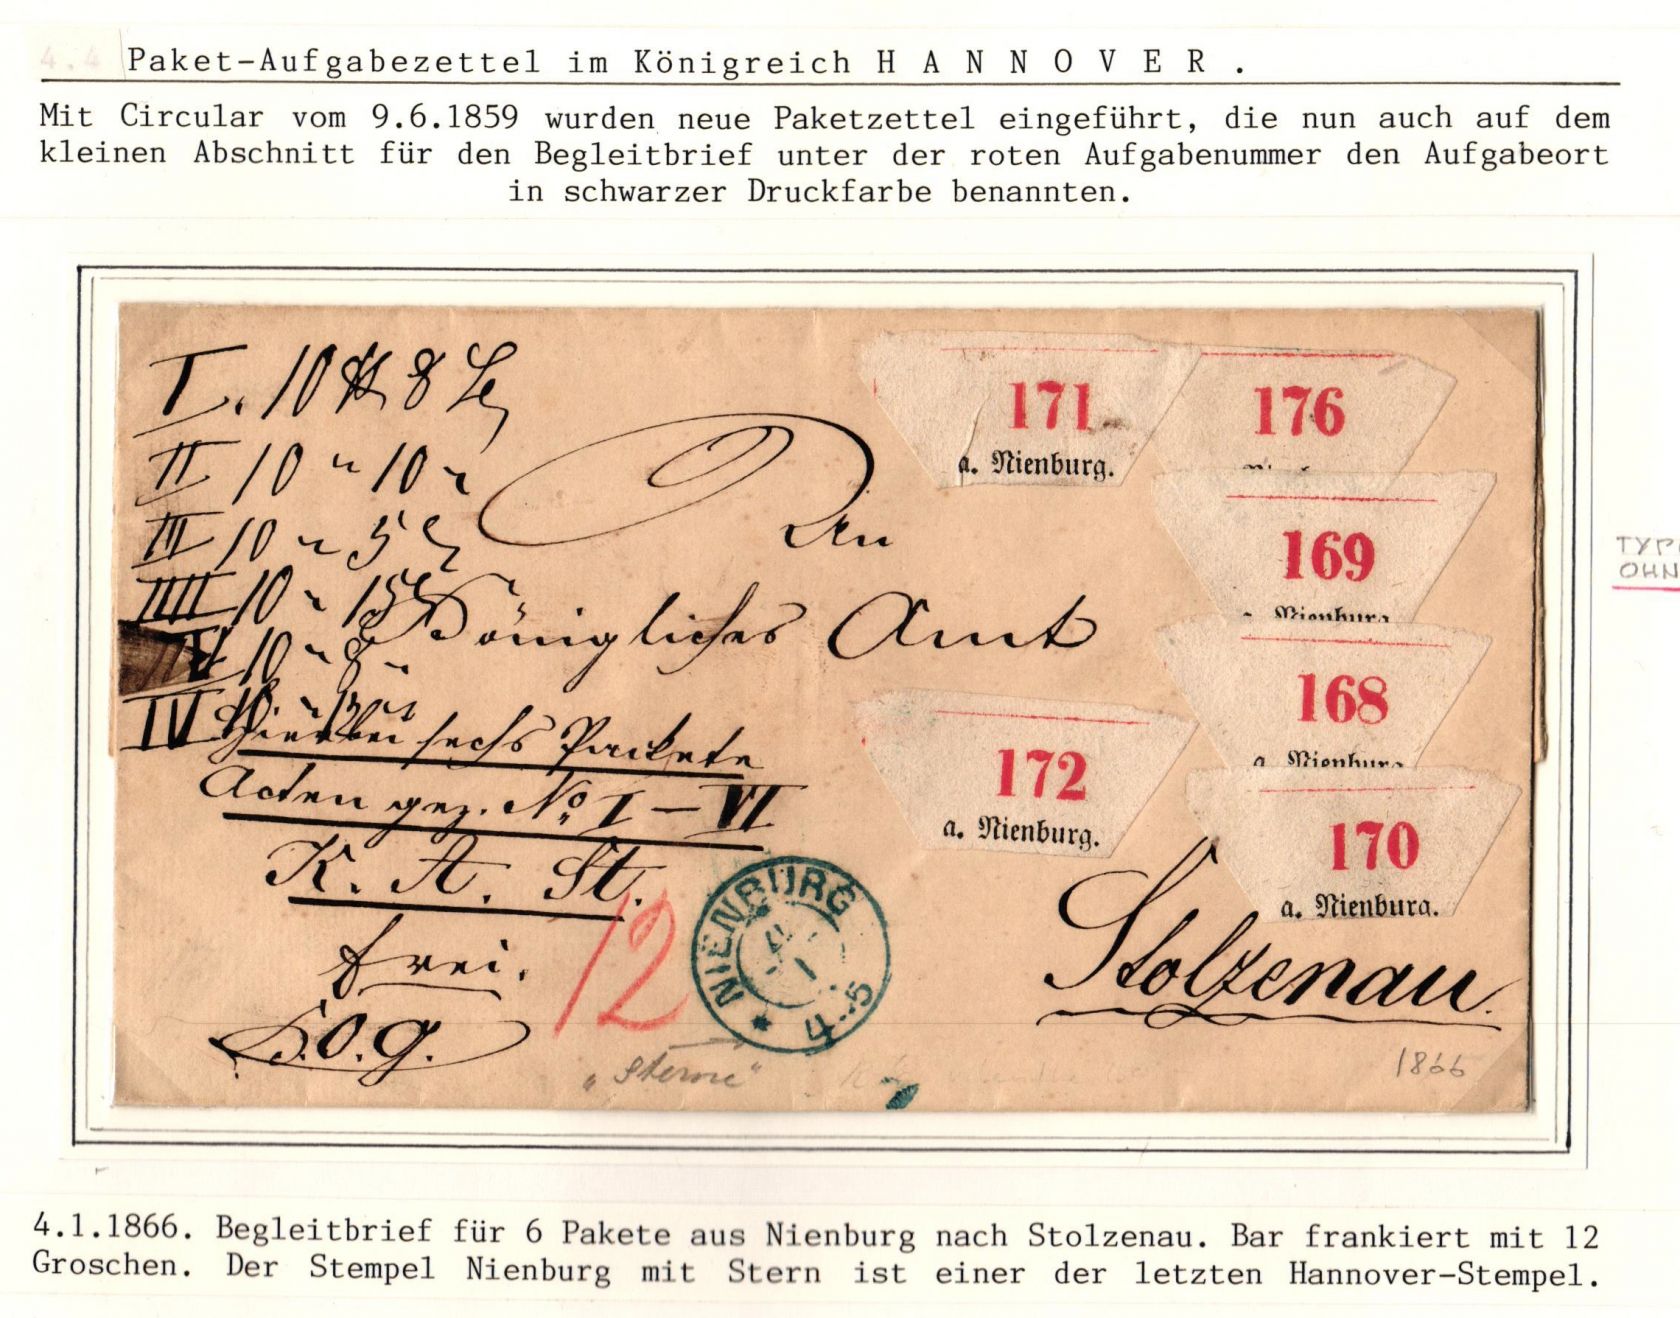 4.4 Paket-Aufgabezettel im Königreich H A N N O V E R .
Mit Circular vom 9.6.1859 wurden neue Paketzettel eingeführt, die nun auch auf dem
kleinen Abschnitt für den Begleitbrief unter der roten Aufgabenummer den Aufgabeort
in schwarzer Druckfarbe benannten.
I. 10 ℔ 8
II 10 " 10 "
III 10 " 5
IIII 10 " 15
V 10 " 8 "
IV
An
Königliches Amt
Hierbei sechs Packete
Acten gez. No. I – VI
K. A. St.
frei.
H.O.g.
12
171
a. Nienburg.
176
169
a. Nienburg
168
a. Nienburg
172
a. Nienburg.
170
a. Nienburg.
NIENBURG
4
1
4-5
Stolzenau.
"Sterne"
1866
TYP
OHN
4.1.1866. Begleitbrief für 6 Pakete aus Nienburg nach Stolzenau. Bar frankiert mit 12
Groschen. Der Stempel Nienburg mit Stern ist einer der letzten Hannover-Stempel.